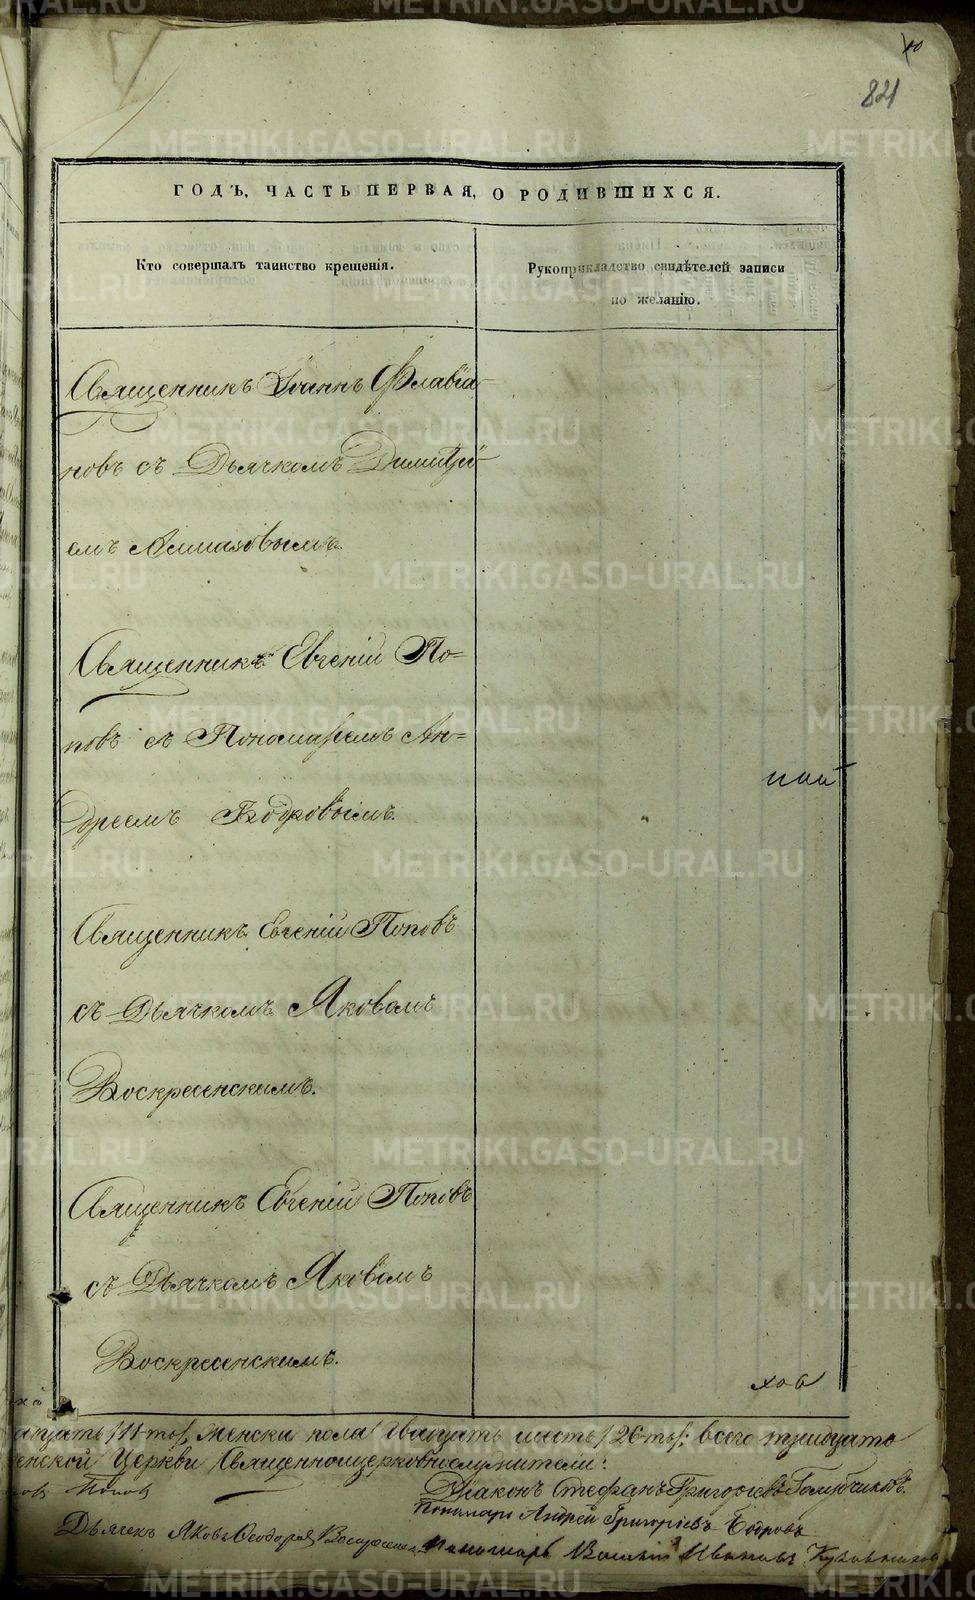 10
821
ГОДЪ, ЧАСТЬ ПЕРВАЯ, О РОДИВШИХСЯ.
Кто совершалъ таинство крещенія.
Рукоприкладство свидѣтелей записи
по желанію.
Священникъ Іоаннъ Флавіа-
новъ съ Дьячкомъ Димитрі-
емъ Алмазовымъ.
Священникъ Евгеній По=
повъ съ Пономаремъ Ан=
дреемъ Бодровымъ.
Священникъ Евгеній Поповъ
съ Дьячкомъ Яковомъ
Воскресенскимъ.
Священникъ Евгеній Поповъ
съ Дьячкомъ Яковомъ
Воскресенскимъ.
хов
/11-ть/, женска пола двадцать шесть /26-ть/: всего тридцать
енской Церкви Священноцерковнослужители:
Поповъ
Діаконъ Стефанъ Григорьевъ
Пономарь Андрей Григорьевъ Бодровъ
Дьячекъ Яковъ Воскресенск
Пономарь Василій Ивановъ
METRIKI.GASO-URAL.RU